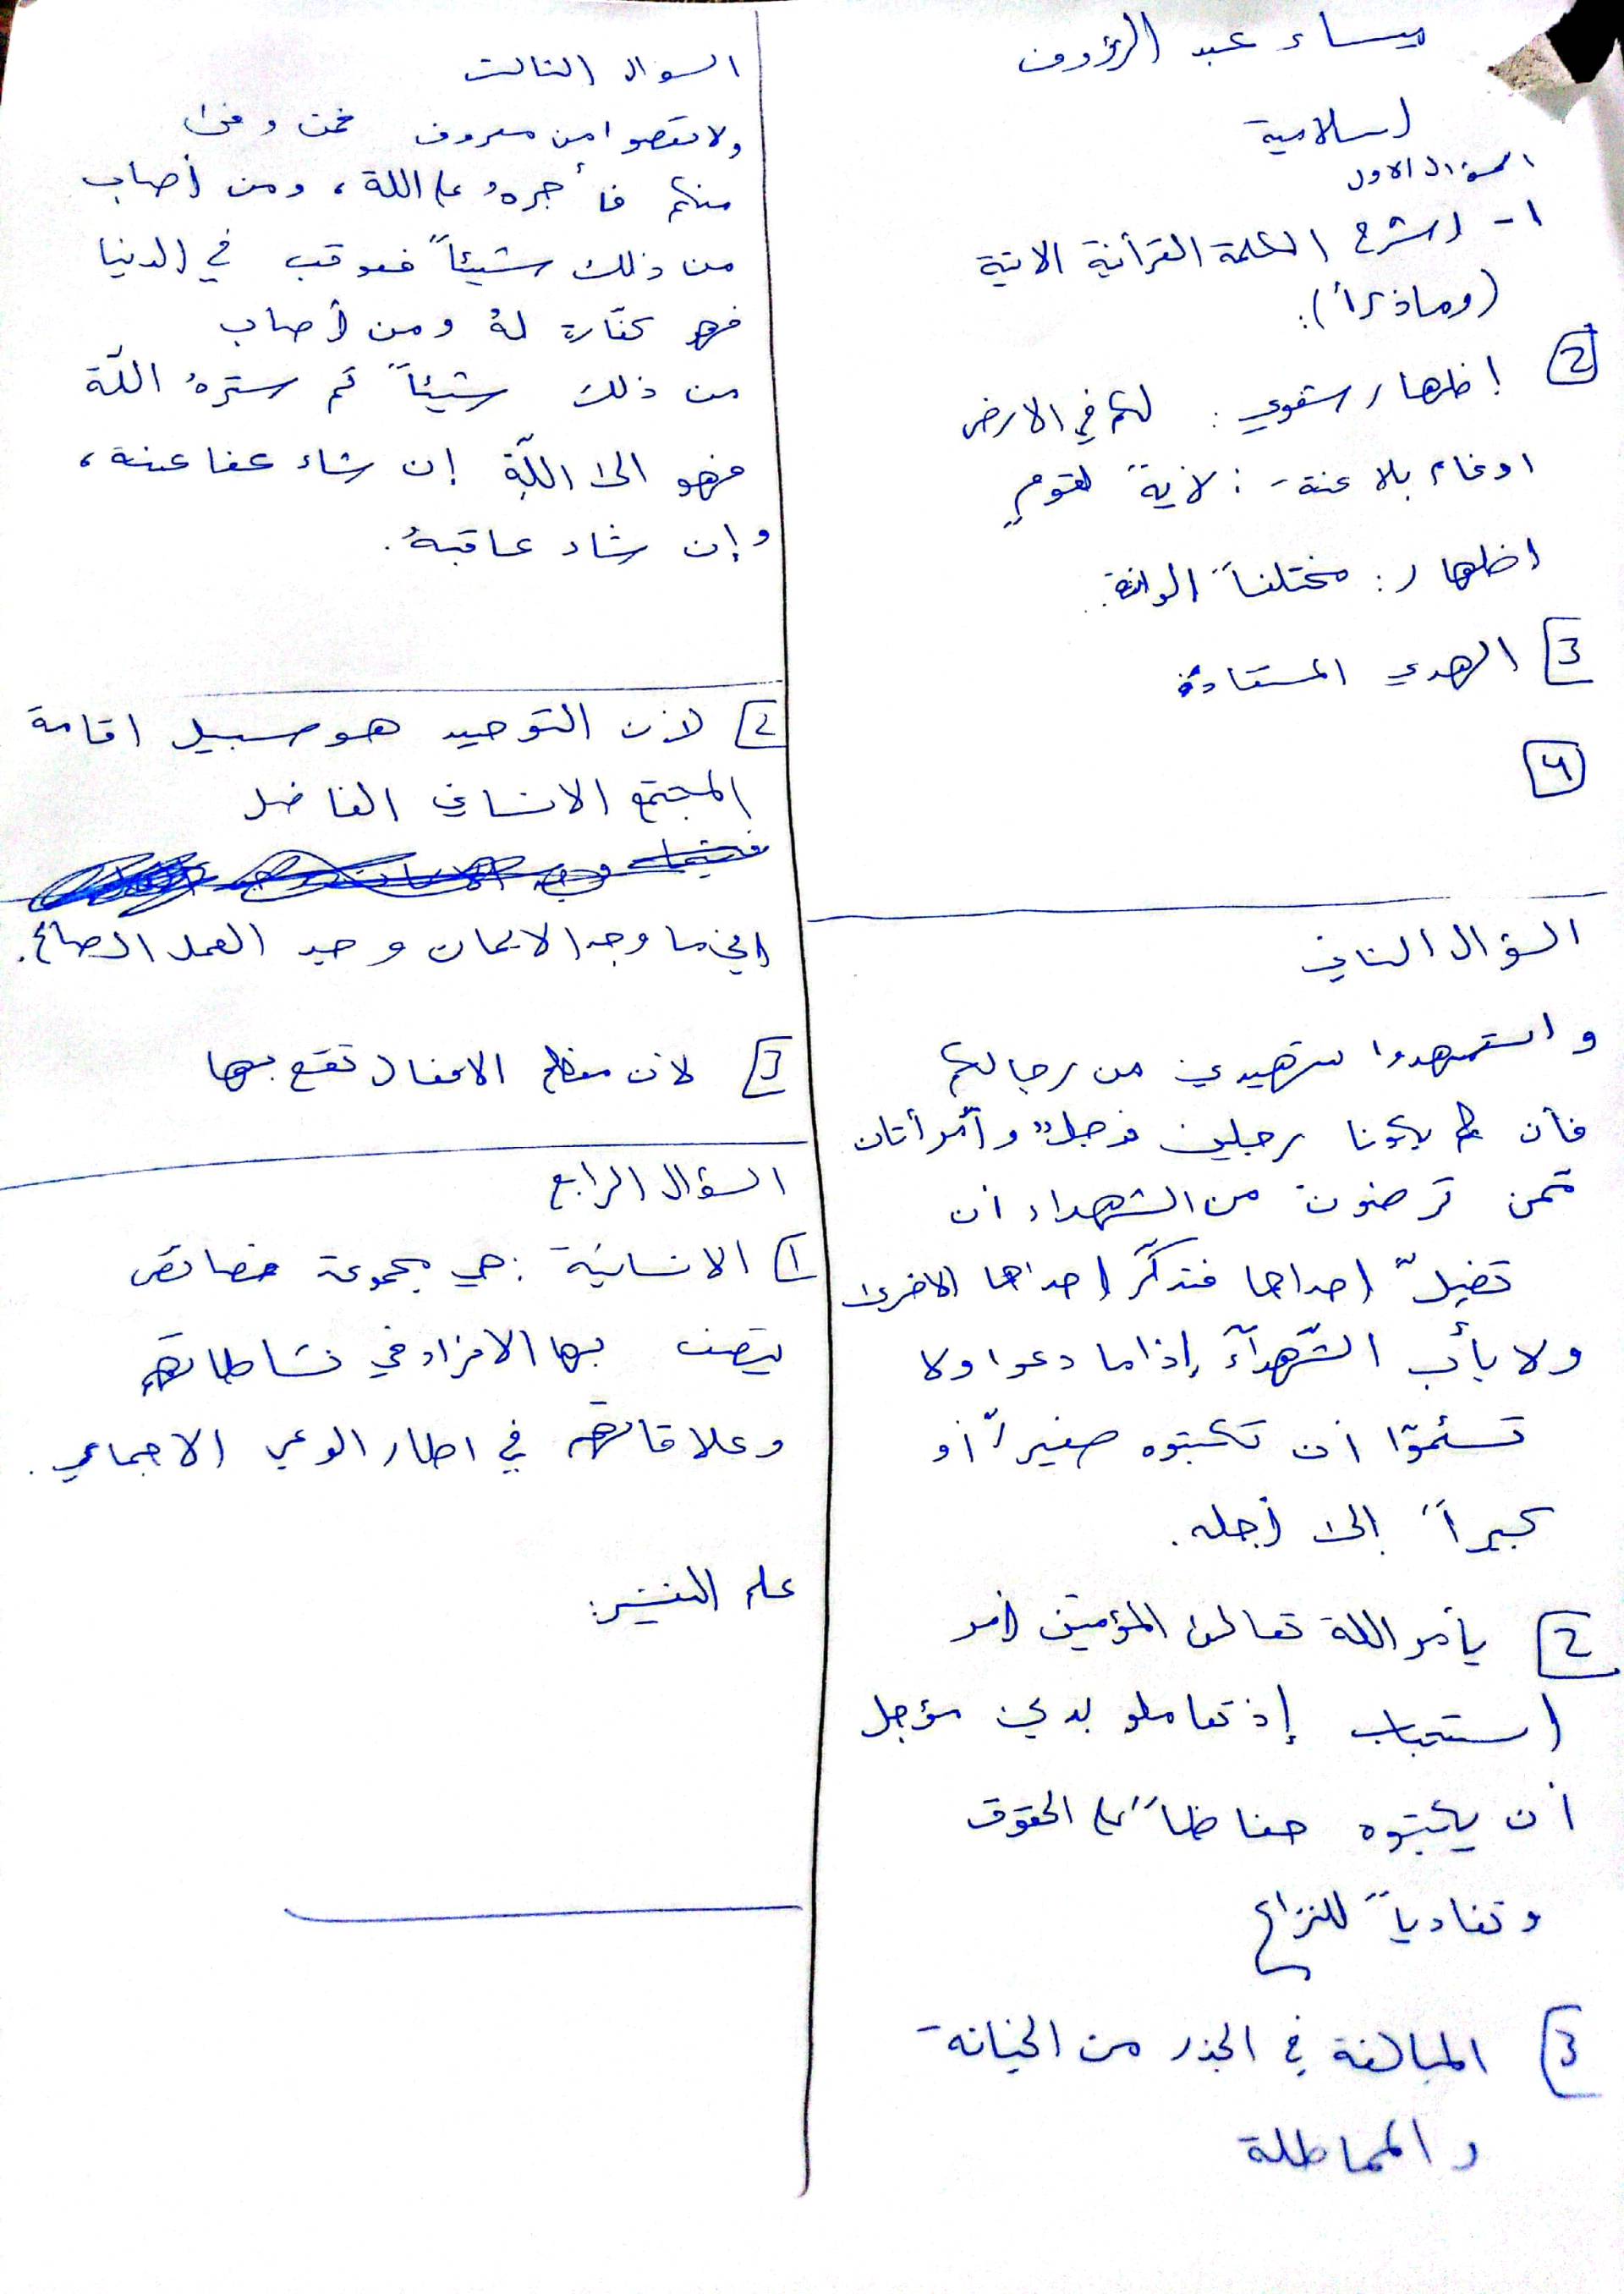 ميساء عبد الرؤوف
اسلامية
السؤال الاول
١- اشرح الكلمة القرأنية الاتية
(وماذرأ):
2 إظهار شفوي : لكم في الارض
ادغام بلا غنة : لاية لقومٍ
اظهار : مختلفاً الوانة
3 الهدي المستفادة
4
السؤال الثاني
واستشهدوا شهيدين من رجالكم
فأن لم يكونا رجلين فرجلٌ وأمرأتان
ممن ترضون من الشهداء ان
تضلّ احداهما فتذكّر احداهما الاخرى
ولا يأب الشّهدآء إذا ما دعوا ولا
تسئموّا أن تكتبوه صغيراً أو
كبيراً إلى أجله.
2 يأمر اللة تعالى المؤمنين أمر
استحباب إذ تعاملو بدين مؤجل
أن يكتبوه حفاظاً على الحقوق
وتفادياً للنزاع
3 المبالغة في الحذر من الخيانة
والمماطلة
السوال الثالث
ولا تعصوا من معروف فمن وفى
منكم فأجرهُ على اللة ، ومن أصاب
من ذلك شيئاً فعوقب في الدنيا
فهو كفّارة لهُ ومن أصاب
من ذلك شيئاً ثم سترهُ اللّة
فهو الى اللّة إن شاء عفا عنه ،
وإن شاء عاقبهُ.
2 لان التوحيد هو سبيل اقامة
المجتمع الانساني الفاضل
اين ما وجد الايمان وجد العمل الصالح.
3 لان معظم الافعال تقع بها
السؤال الرابع
1 الانسانية : هي مجموعة خصائص
يتصف بها الافراد في نشاطاتهم
وعلاقاتهم في اطار الوعي الاجماعي .
علم التفسير: